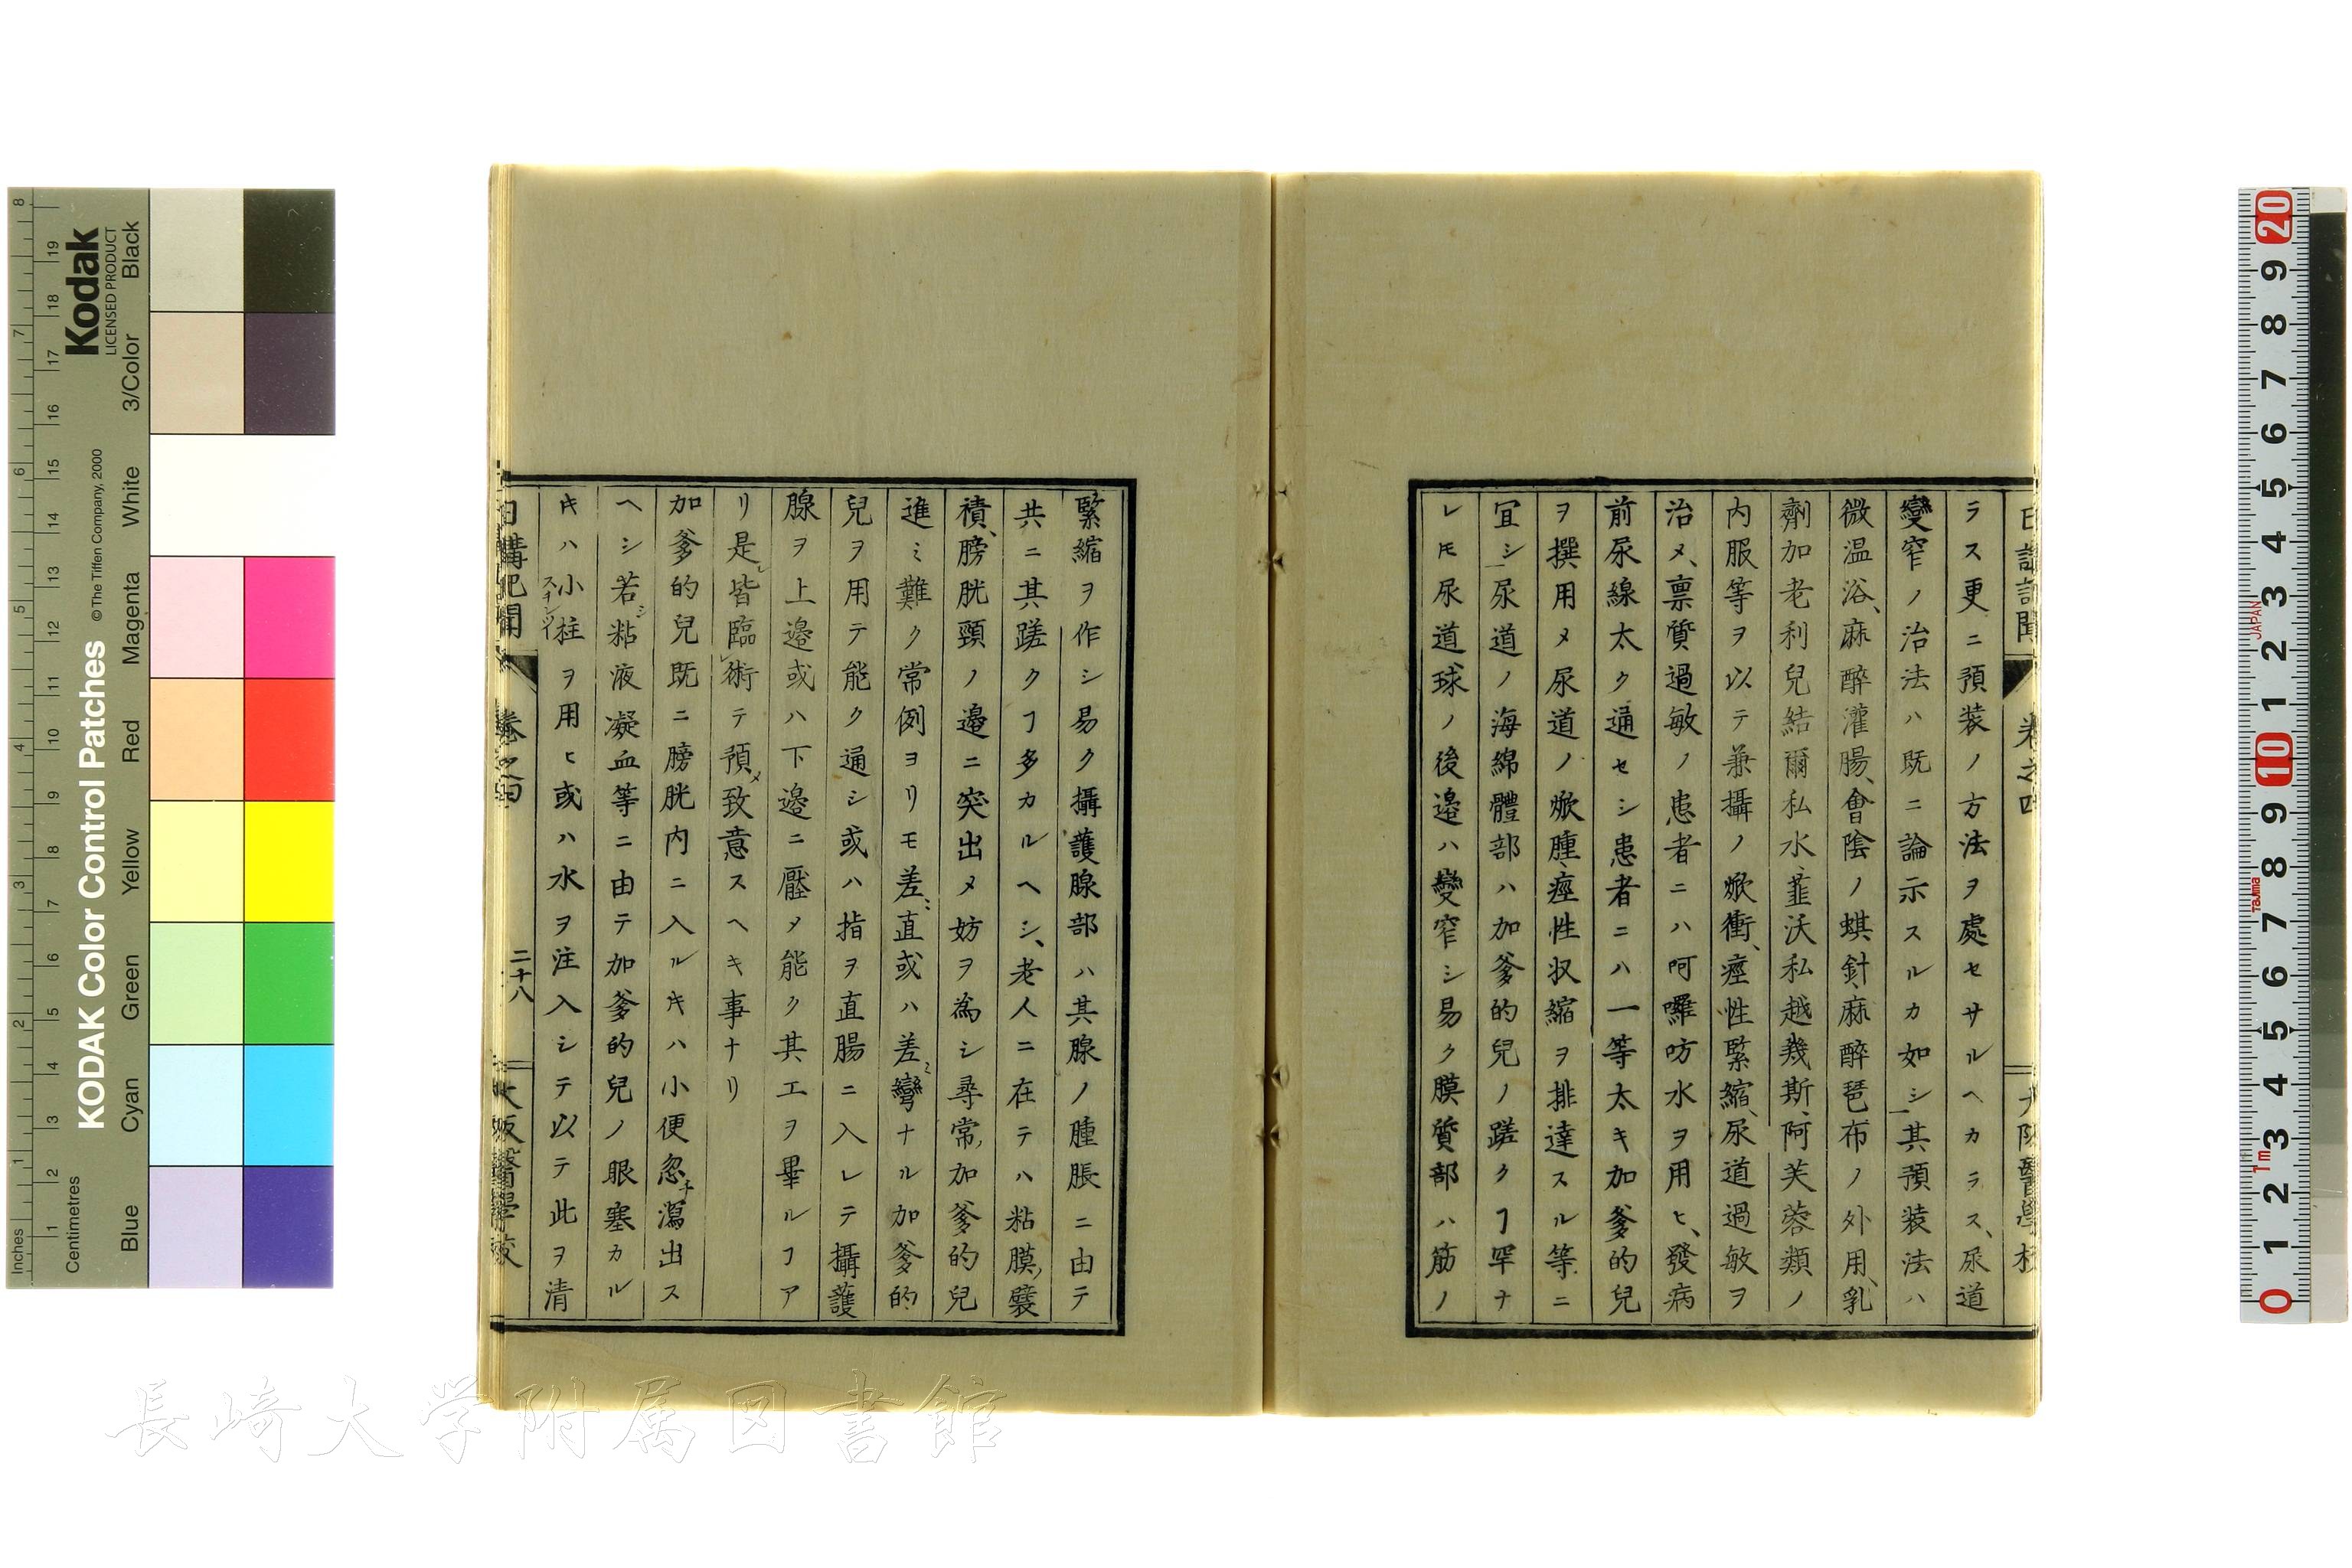 日講記聞 卷之四 大阪醫學校
ラス更ニ預装ノ方法ヲ處セサルヘカラス、尿道
變窄ノ治法ハ既ニ論示スルカ如シ其預装法ハ
微温浴、麻醉灌腸、會陰ノ蜞針、麻醉琶布ノ外用、乳
劑加老利兒結爾私水、韮沃私越幾斯、阿芙蓉類ノ
内服等ヲ以テ兼攝ノ焮衝、痙性緊縮、尿道過敏ヲ
治メ、禀質過敏ノ患者ニハ呵囉吩水ヲ用ヒ、發病
前尿線太ク通セシ患者ニハ一等太キ加爹的兒
ヲ撰用メ尿道ノ焮腫、痙性収縮ヲ排達スル等ニ
冝シ尿道ノ海綿體部ハ加爹的兒ノ蹉クヿ罕ナ
レ𪜈尿道球ノ後邉ハ變窄シ易ク膜質部ハ筋ノ
緊縮ヲ作シ易ク攝護腺部ハ其腺ノ腫脹ニ由テ
共ニ其蹉クヿ多カルヘシ、老人ニ在テハ粘膜、襞
積、膀胱頸ノ邉ニ突出メ妨ヲ為シ尋常、加爹的兒
進ミ難ク常例ヨリモ差ミ直或ハ差ミ彎ナル加爹的
兒ヲ用テ能ク通シ或ハ指ヲ直腸ニ入レテ攝護
腺ヲ上邉或ハ下邉ニ壓メ能ク其工ヲ畢ルヿア
リ是レ皆臨術テ預メ致意スヘキ事ナリ
加爹的兒既ニ膀胱内ニ入ルキハ小便忽チ瀉出ス
ヘシ若シ粘液凝血等ニ由テ加爹的兒ノ眼塞カル
キハ小柱ヲ用ヒ或ハ水ヲ注入シテ以テ此ヲ清
日講記聞 卷之四 二十八 大阪醫學校
Kodak
LICENSED PRODUCT
KODAK Color Control Patches
© The Tiffen Company, 2000
Inches
Centimetres
Blue Cyan Green Yellow Red Magenta White 3/Color Black
1 2 3 4 5 6 7 8
1 2 3 4 5 6 7 8 9 10 11 12 13 14 15 16 17 18 19
0 1 2 3 4 5 6 7 8 9 10 1 2 3 4 5 6 7 8 9 20
1m
Tajima
JAPAN
長崎大学附属図書館